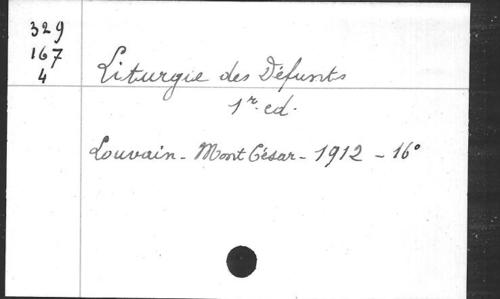 329
167
4
Liturgie des Défunts
1r. ed.
Louvain - Mont César - 1912 - 16°